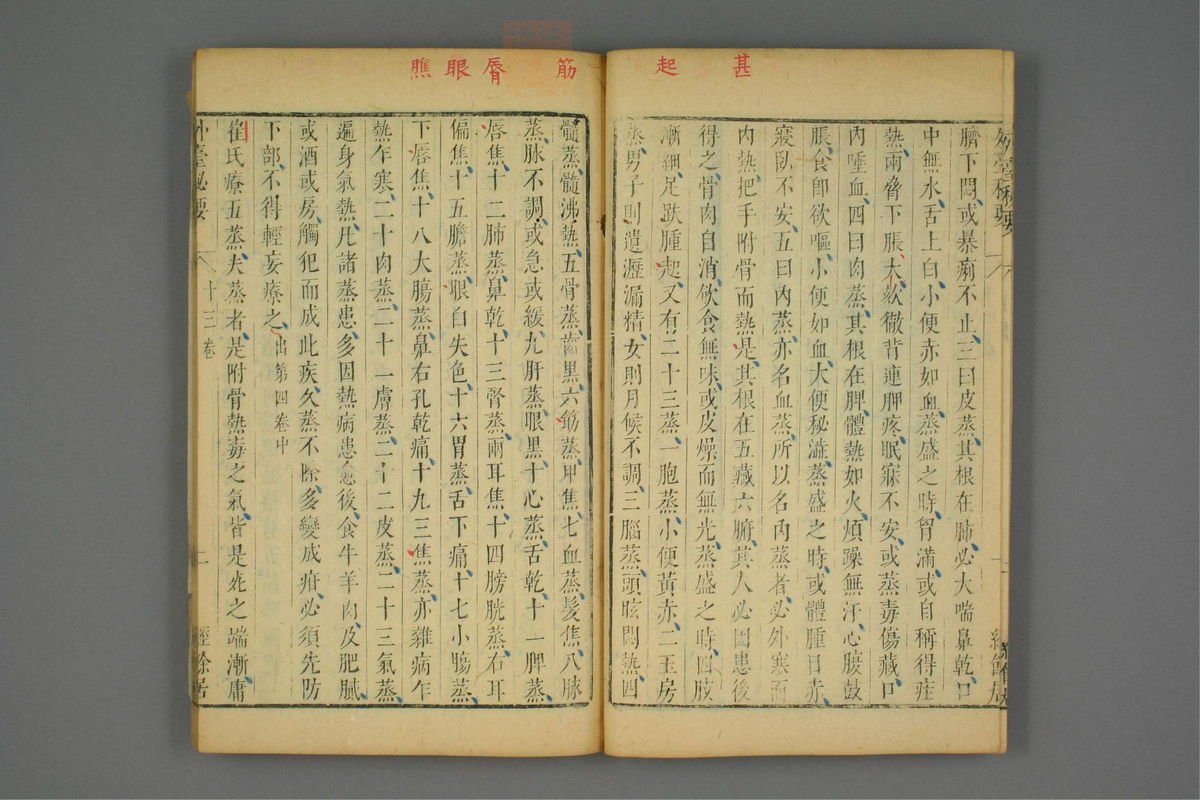 甚
起
臍下悶或暴痢不止三曰皮蒸其根在肺必大喘鼻乾口
中無水舌上白小便赤如血蒸盛之時胷滿或自稱得疰
熱兩脅下脹大欬徹背連胛疼眠寐不安或蒸毒傷藏口
内唾血四曰肉蒸其根在脾體熱如火煩躁無汗心腹鼓
脹食卽欲嘔小便如血大便秘澁蒸盛之時或體腫目赤
寢臥不安五曰内蒸亦名血蒸所以名内蒸者必外寒而
内熱把手附骨而熱是其根在五藏六腑其人必因患後
得之骨肉自消飲食無味或皮燥而無光蒸盛之時四肢
漸細足趺腫起又有二十三蒸一胞蒸小便黃赤二玉房
蒸男子則遺瀝漏精女則月候不調三腦蒸頭眩悶熱四
筋
脣
眼
膲
髓蒸髓沸熱五骨蒸齒黑六筋蒸甲焦七血蒸髮焦八脉
蒸脉不調或急或緩九肝蒸眼黑十心蒸舌乾十一脾蒸
唇焦十二肺蒸鼻乾十三腎蒸兩耳焦十四膀胱蒸右耳
偏焦十五膽蒸眼白失色十六胃蒸舌下痛十七小腸蒸
下唇焦十八大腸蒸鼻右孔乾痛十九三焦蒸亦雜病乍
熱乍寒二十肉蒸二十一膚蒸二十二皮蒸二十三氣蒸
遍身氣熱凡諸蒸患多因熱病患愈後食牛羊肉及肥膩
或酒或房觸犯而成此疾久蒸不除多變成疳必須先防
下部不得輕妄療之出第四卷中
崔氏療五蒸夫蒸者是附骨熱毒之氣皆是死之端漸庸
外臺秘要 十三卷 二 經餘居